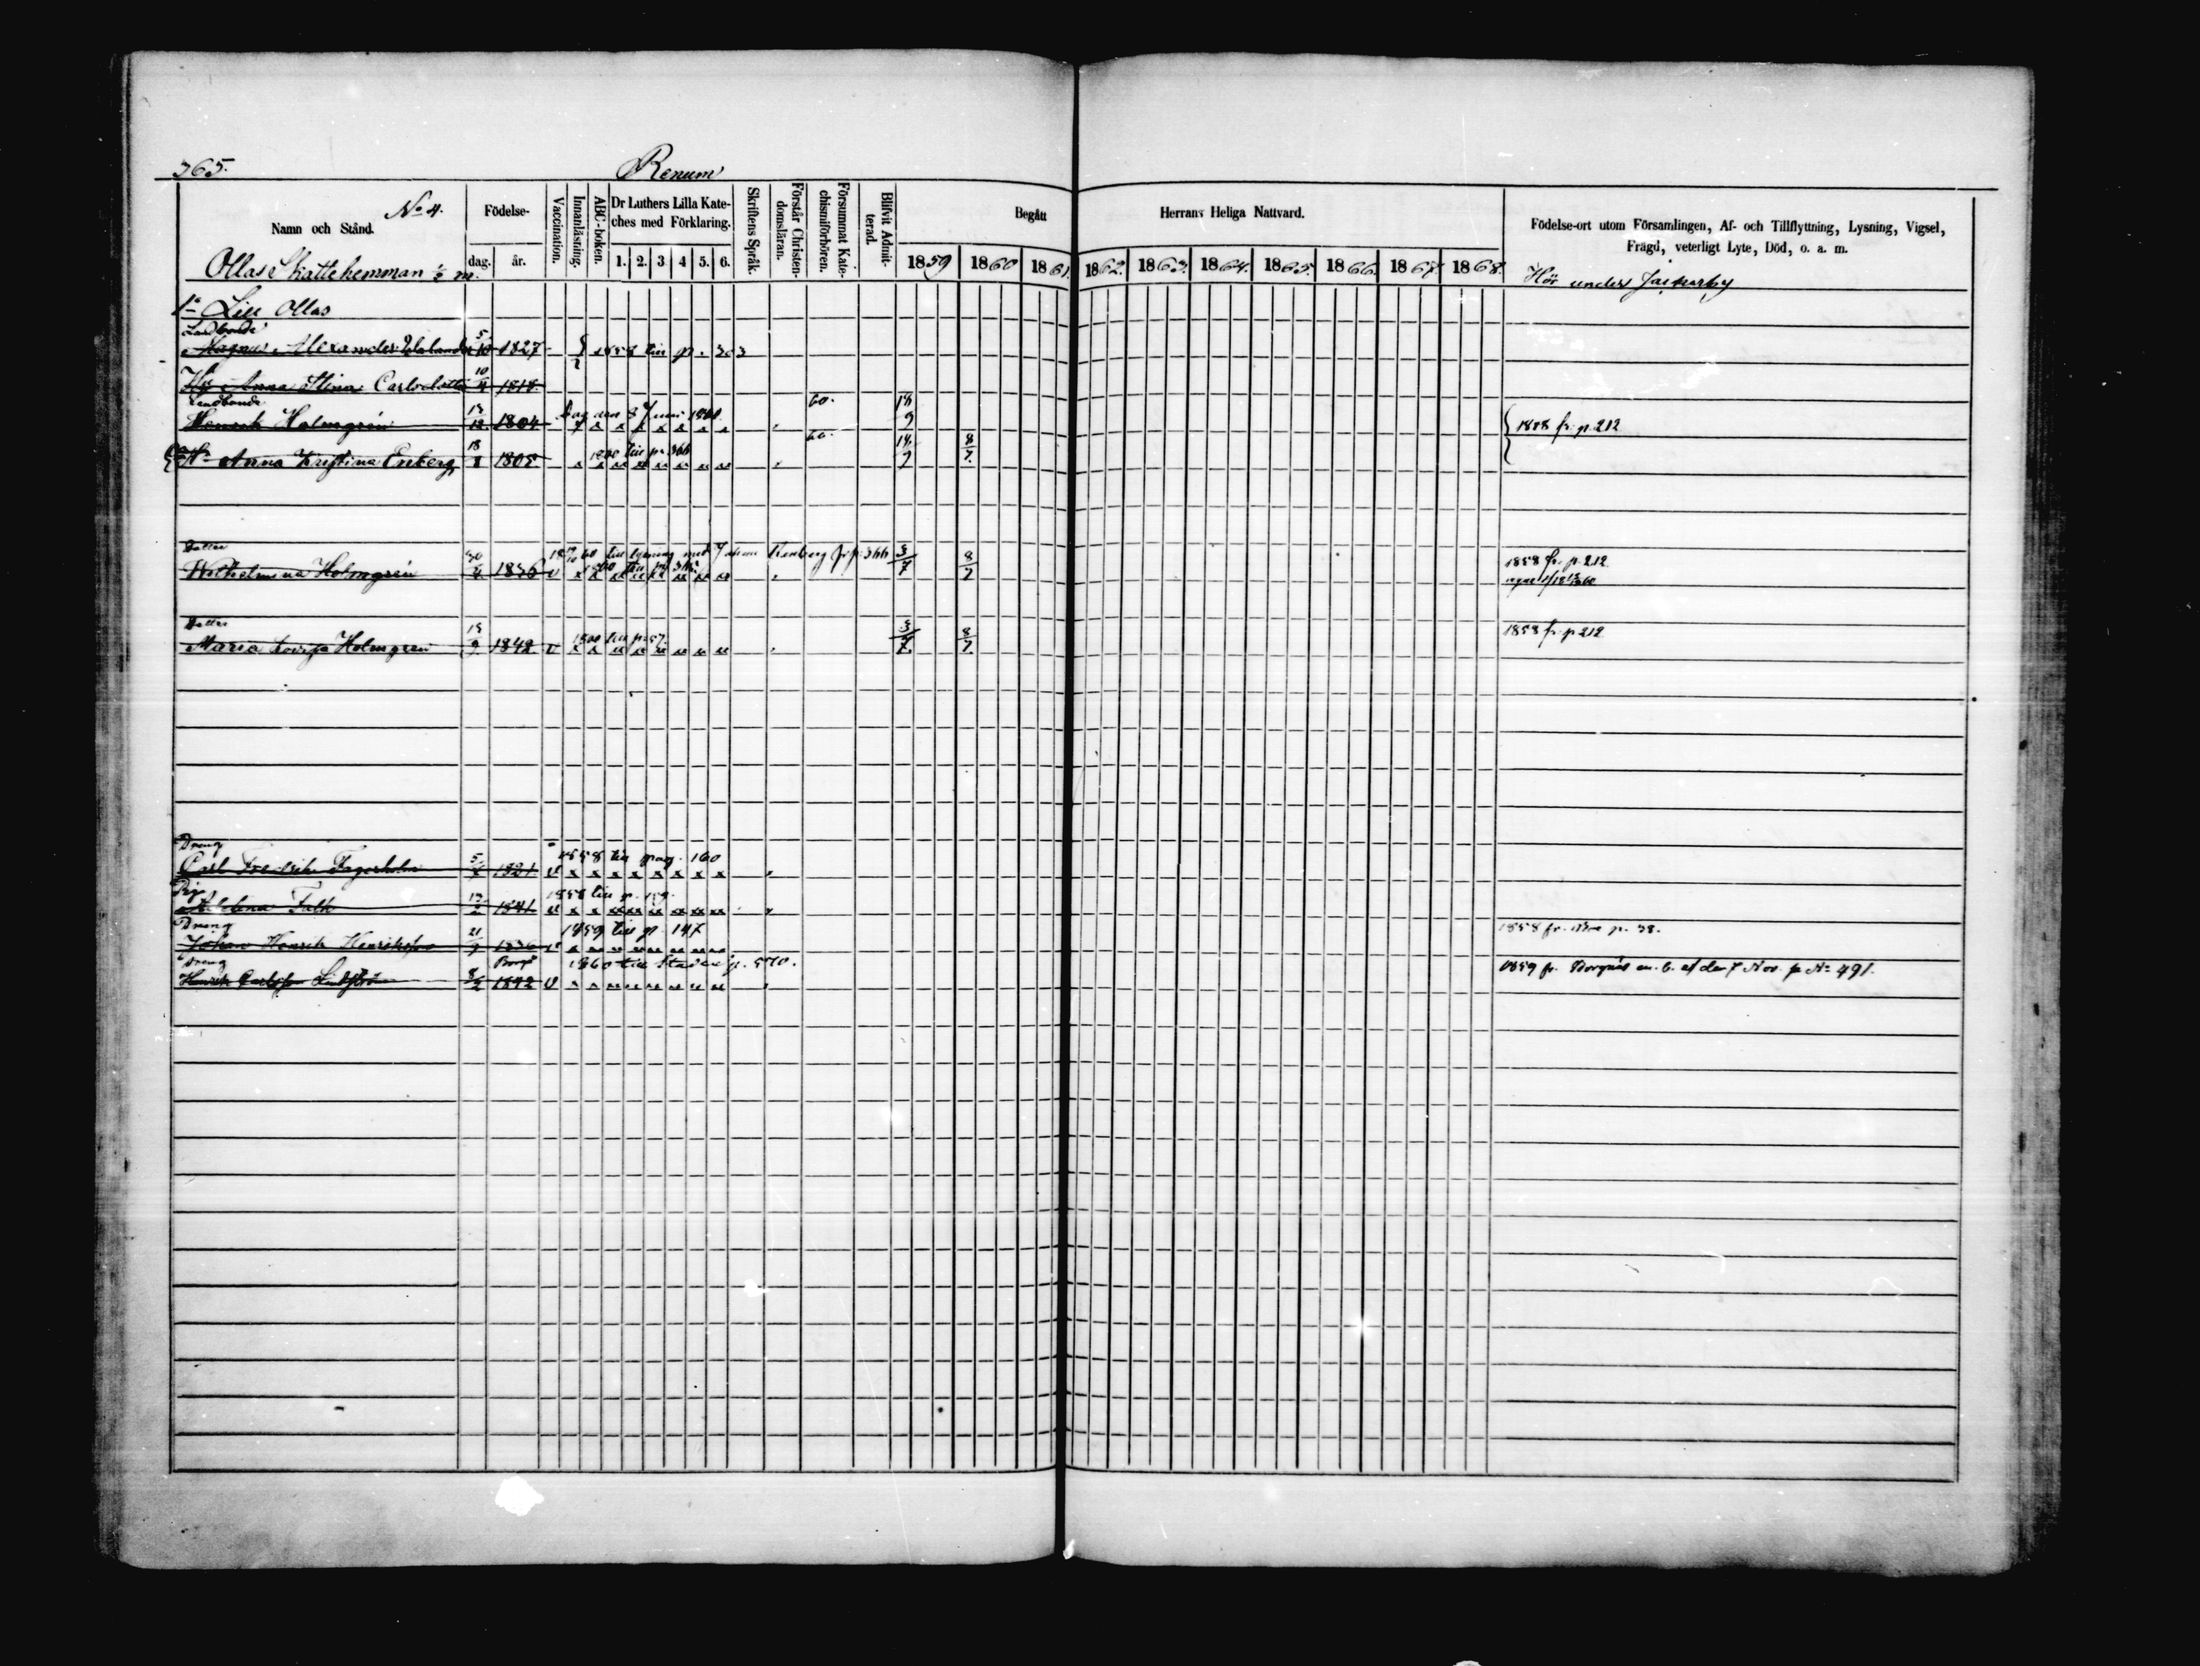 365.
Renum
No 4.
Namn och Stånd.
Födelse-
dag. år.
Vaccination.
Innanläsning.
ABC-boken.
Dr Luthers Lilla Kate-
ches med Förklaring.
1. 2. 3 4 5. 6.
Skriftens Språk.
Förstår Christen-
domsläran.
Försummat Kate-
chismiförhören.
Blifvit Admit-
terad.
Begått Herrans Heliga Nattvard.
1859 1860 1861. 1862. 1863. 1864. 1865. 1866. 1867. 1868.
Födelse-ort utom Församlingen, Af- och Tillflyttning, Lysning, Vigsel,
Frägd, veterligt Lyte, Död, o. a. m.
Ollas Skattehemman
Hör under
Lill Ollas
Landbonde
Magnus Alexander 5/10 1827 1858 till p. 303
Hu Anna Stina Carlsdotter 10/4 1818.
Landbonde
Henrik Holmgrén 1804 den 8 Juni 1860. 60. 1858 fr. p. 212
Hu Anna Kristina Enberg 18 1805 1860 till p. 366 60. 8/7
Dotter
Wilhelmina Holmgrén 30/4 1836 v till lysning med Johan p. 366 3/7 8/7 1858 fr. p. 212
Dotter
Maria Lovisa Holmgrén 1842 v 1860 till p. 57. 3/7 8/7 1858 fr. p 212
Dreng
Carl Fredrik Fagerholm 1821 v 1858 till pag. 160
Pig.
Helena Falk 1841 v 1858 till p. 159.
Dreng
Johan Henrik Henriksson 21/9 1836 v 1859 till p. 147 1858 fr. p. 38.
Dreng Borgå
Henrik Carlsson Lindström 8/2 1842 v 1860 till Staden p. 570. 1859 fr. Borgnäs en. b. af den 7 Nov. p No 491.